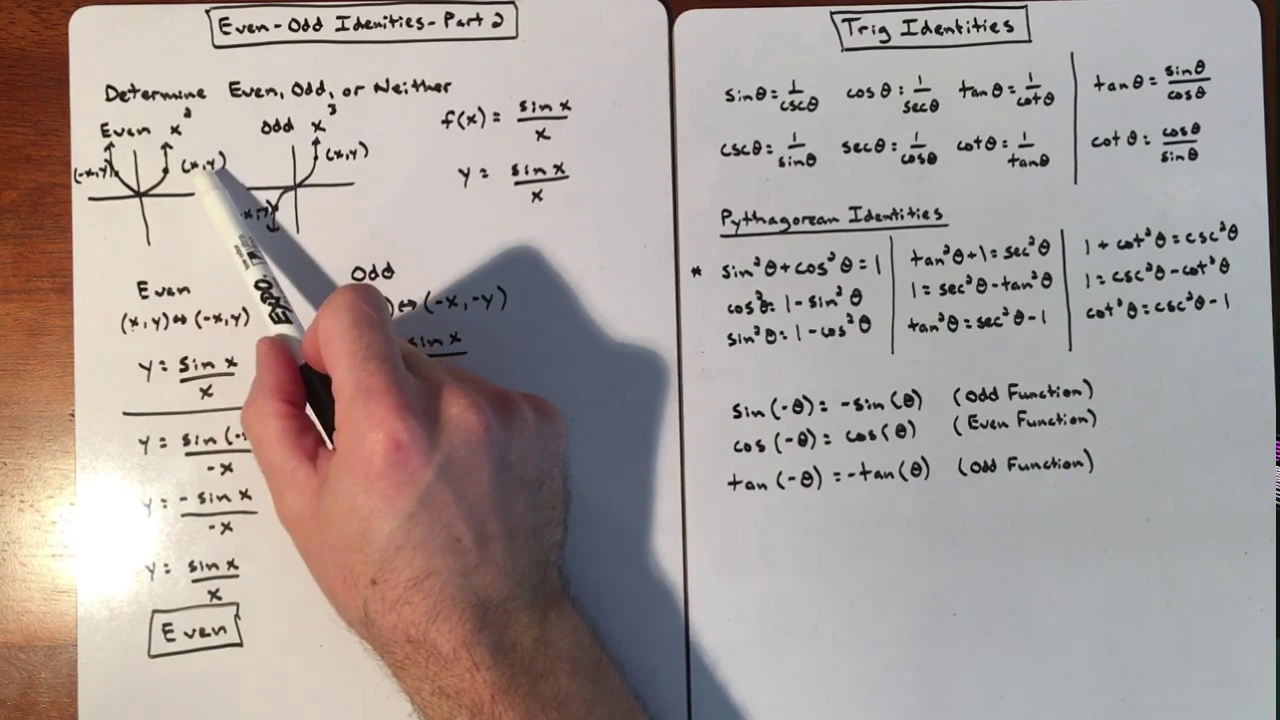 Even-Odd Idenities-Part 2
Determine Even, Odd, or Neither
Even x²
odd x³
(-x,y)
(x,y)
(x,y)
f(x) = sin x / x
y = sin x / x
Even
(x,y) ↔ (-x,y)
y = sin x / x
y = sin (- / -x
y = - sin x / -x
y = sin x / x
Even
Odd
↔ (-x,-y)
sin x
EXPO
Trig Identities
sinθ = 1/cscθ cosθ = 1/secθ tanθ = 1/cotθ tanθ = sinθ/cosθ
cscθ = 1/sinθ secθ = 1/cosθ cotθ = 1/tanθ cotθ = cosθ/sinθ
Pythagorean Identities
* sin²θ + cos²θ = 1
cos²θ = 1 - sin²θ
sin²θ = 1 - cos²θ
tan²θ + 1 = sec²θ
1 = sec²θ - tan²θ
tan²θ = sec²θ - 1
1 + cot²θ = csc²θ
1 = csc²θ - cot²θ
cot²θ = csc²θ - 1
sin(-θ) = -sin(θ) (Odd Function)
cos(-θ) = cos(θ) (Even Function)
tan(-θ) = -tan(θ) (Odd Function)